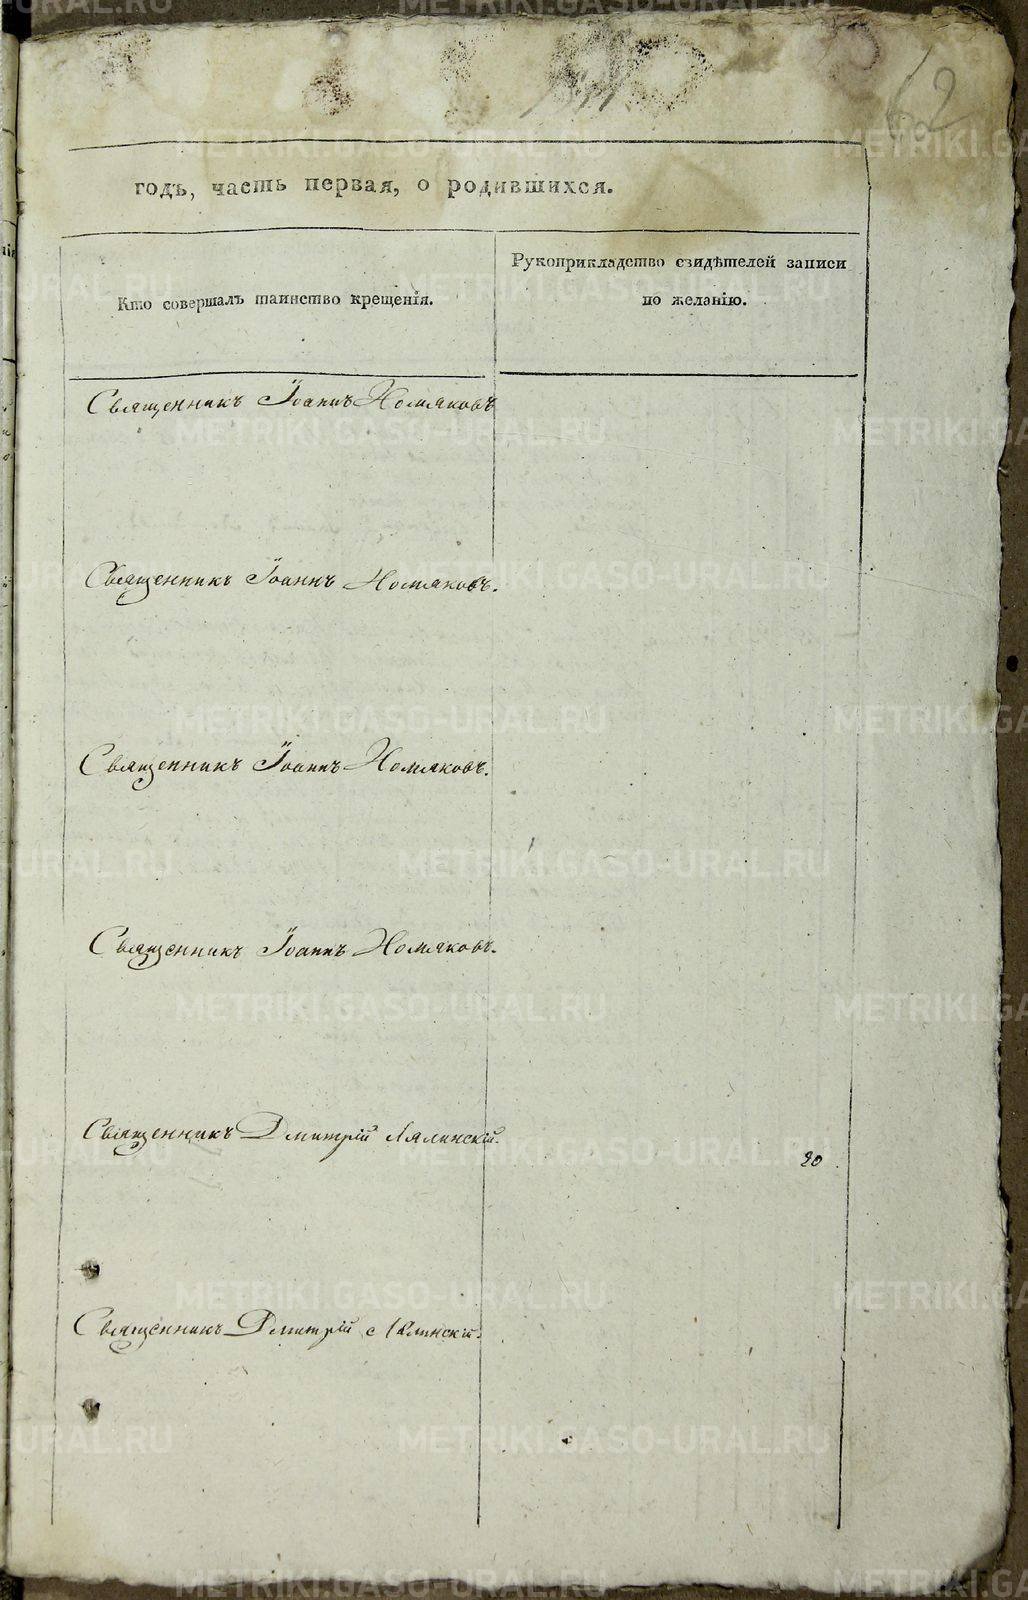 62
годъ, часть первая, о родившихся.
Кто совершалъ таинство крещенія.
Рукоприкладство свидѣтелей записи
по желанію.
Священникъ Іоаннъ Хомяковъ
Священникъ Іоаннъ Хомяковъ.
Священникъ Іоаннъ Хомяковъ.
Священникъ Іоаннъ Хомяковъ.
Священникъ Дмитрій Лялинскій.
20
Священникъ Дмитрій Лялинскій.
METRIKI.GASO-URAL.RU